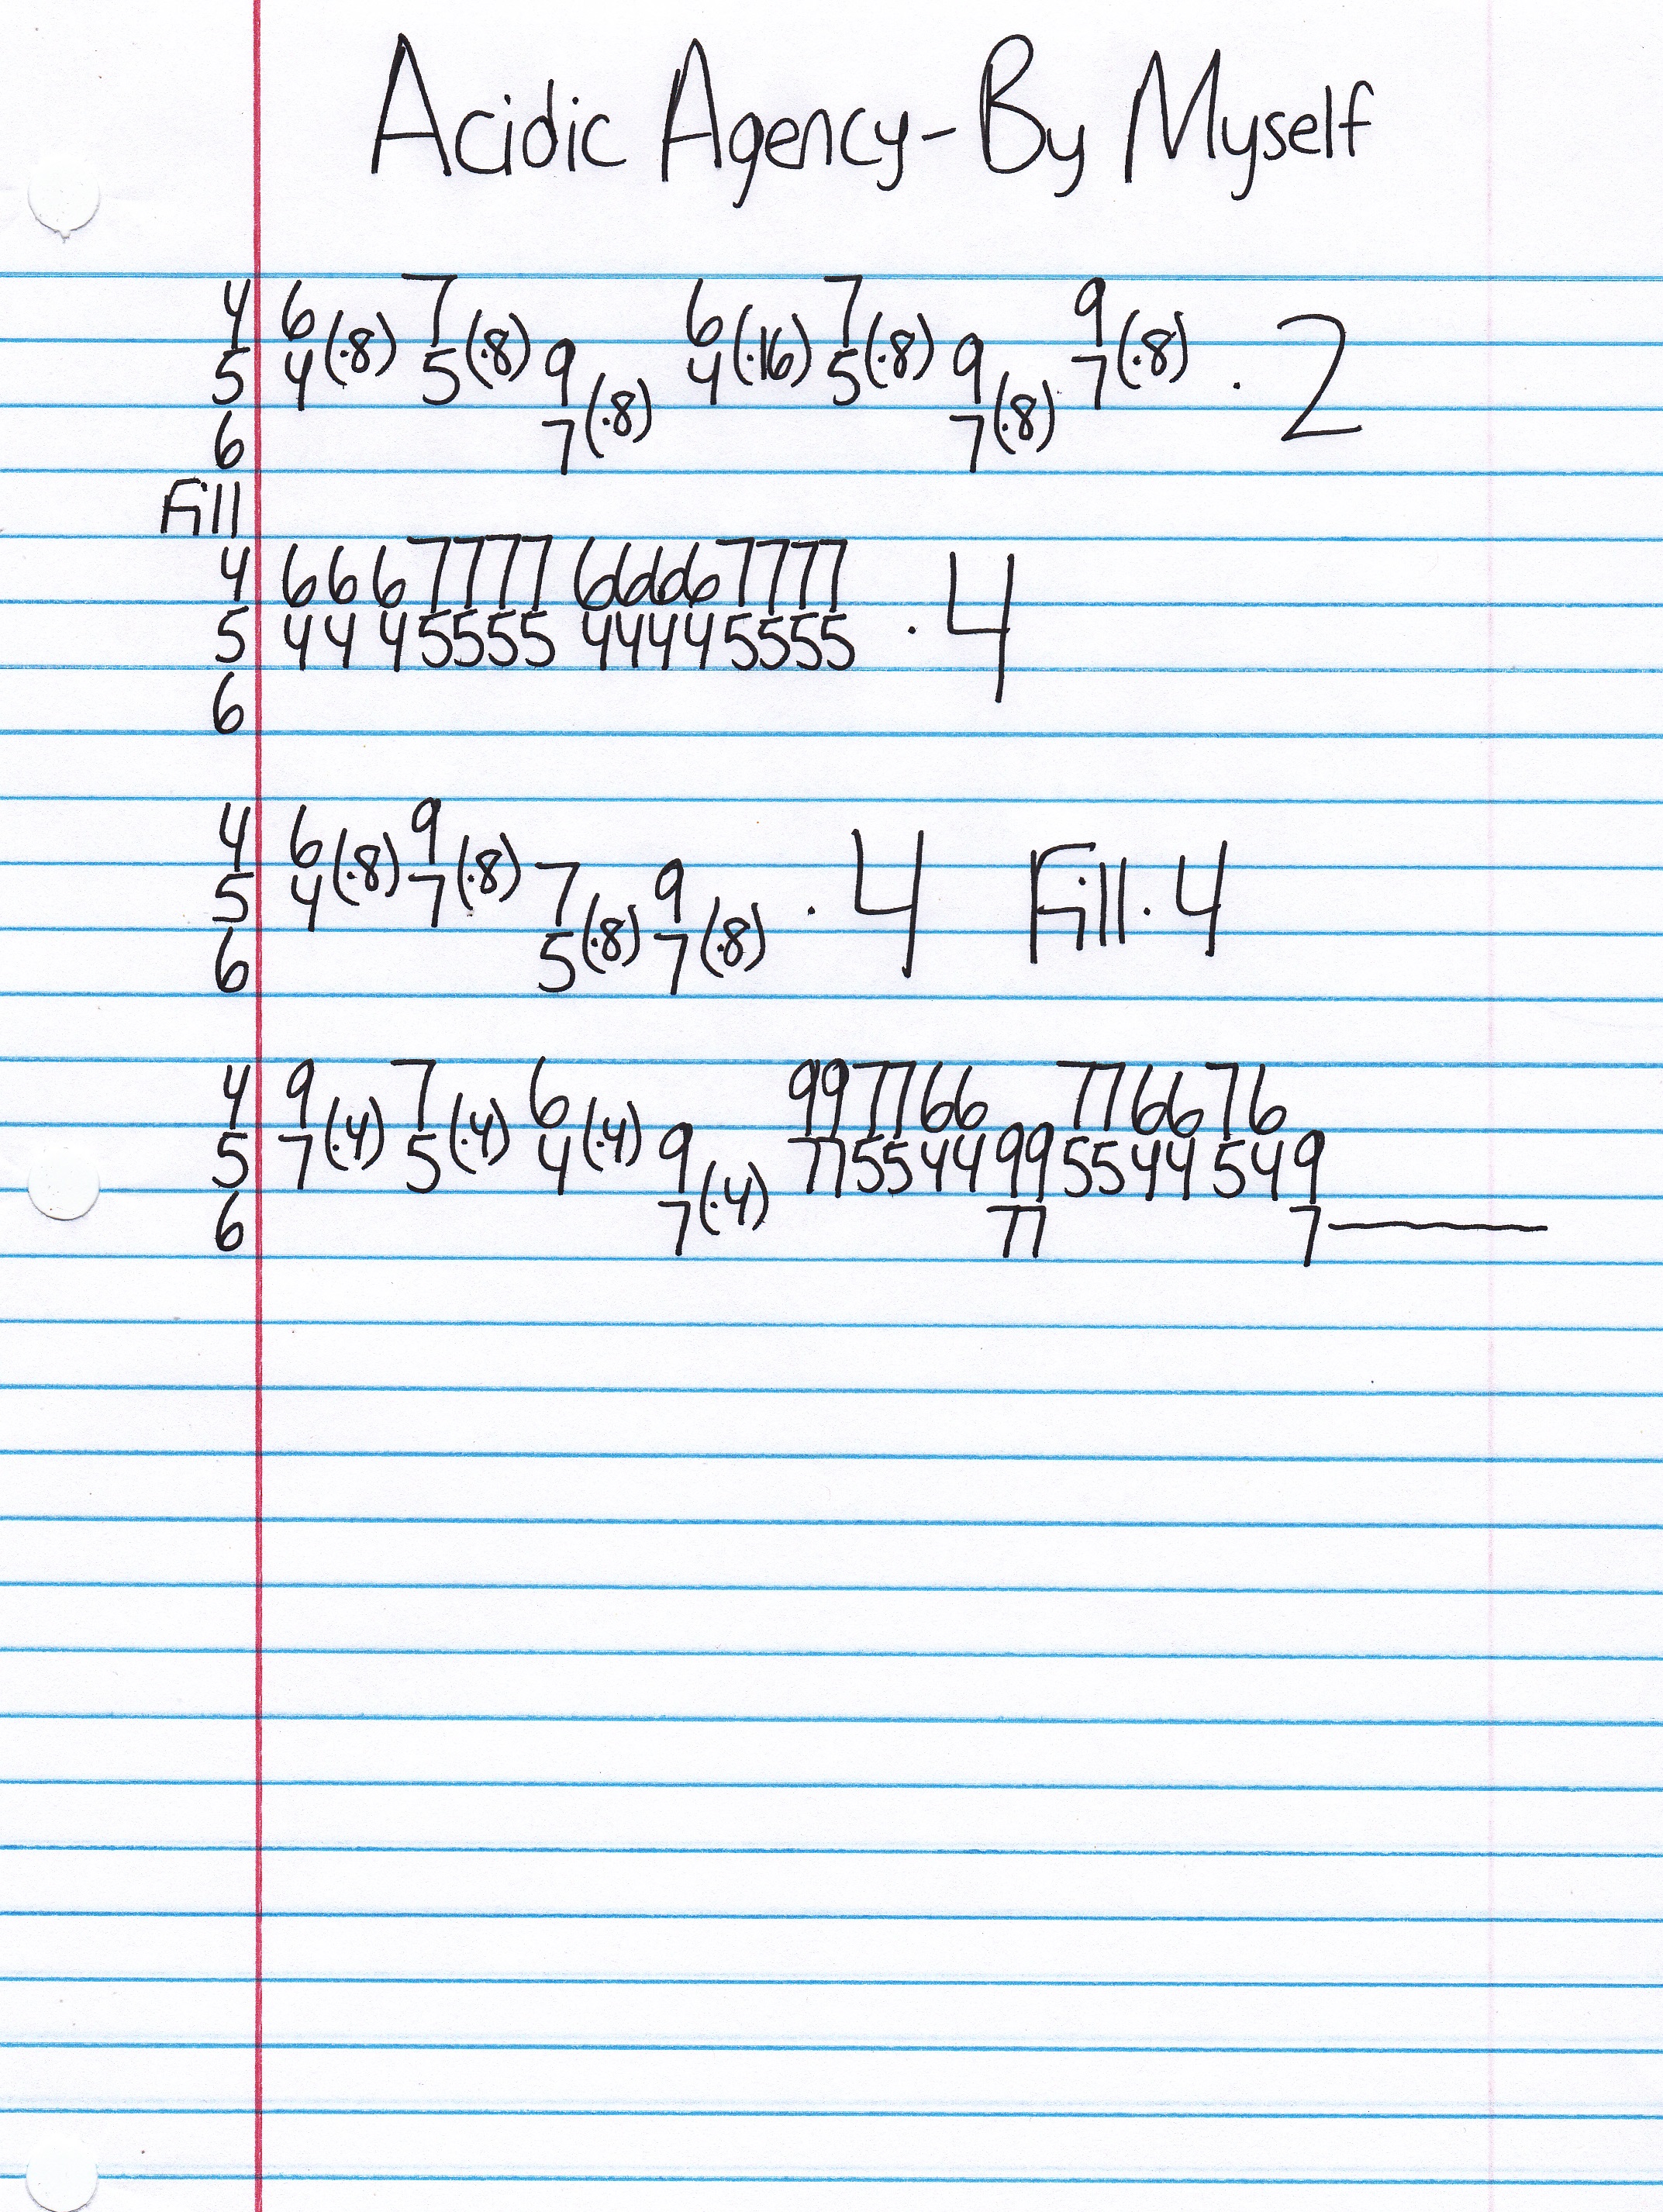 Acidic Agency - By Myself
4 6 7 6 7 9
5 4 (·8) 5 (·8) 9 4 (·16) 5 (·8) 9 7 (·8) · 2
6 7 (·8) 7 (·8)
Fill
4 6 6 6 7 7 7 7 6 6 6 6 7 7 7 7
5 4 4 4 5 5 5 5 4 4 4 4 5 5 5 5 · 4
6
4 6 9
5 4 (·8) 7 (·8) 7 9 · 4 Fill · 4
6 5 (·8) 7 (·8)
4 9 7 6 9 9 7 7 6 6 7 7 6 6 7 6
5 7 (·4) 5 (·4) 4 (·4) 9 7 7 5 5 4 4 9 9 5 5 4 4 5 4 9
6 7 (·4) 7 7 7